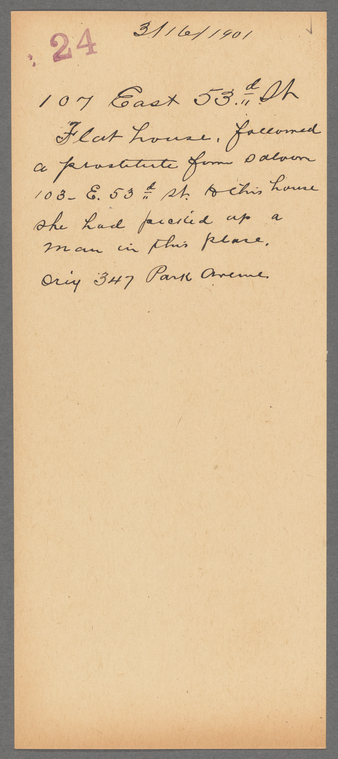 24
3/16/1901
107 East 53.d St
Flat house, followed
a prostitute from saloon
103- E. 53d St. to this house
she had picked up a
man in this place.
347 Park Avenue.